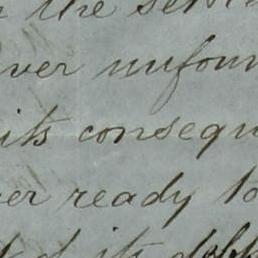 the
ver unfoun
its consequ
er ready to
its